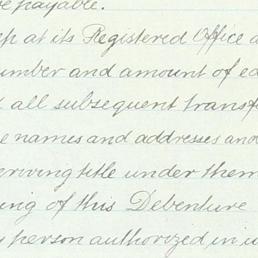 be payable.
at its Registered Office a
number and amount of ea
all subsequent transf
names and addresses and
deriving title under them
ing of this Debenture
person authorized in w